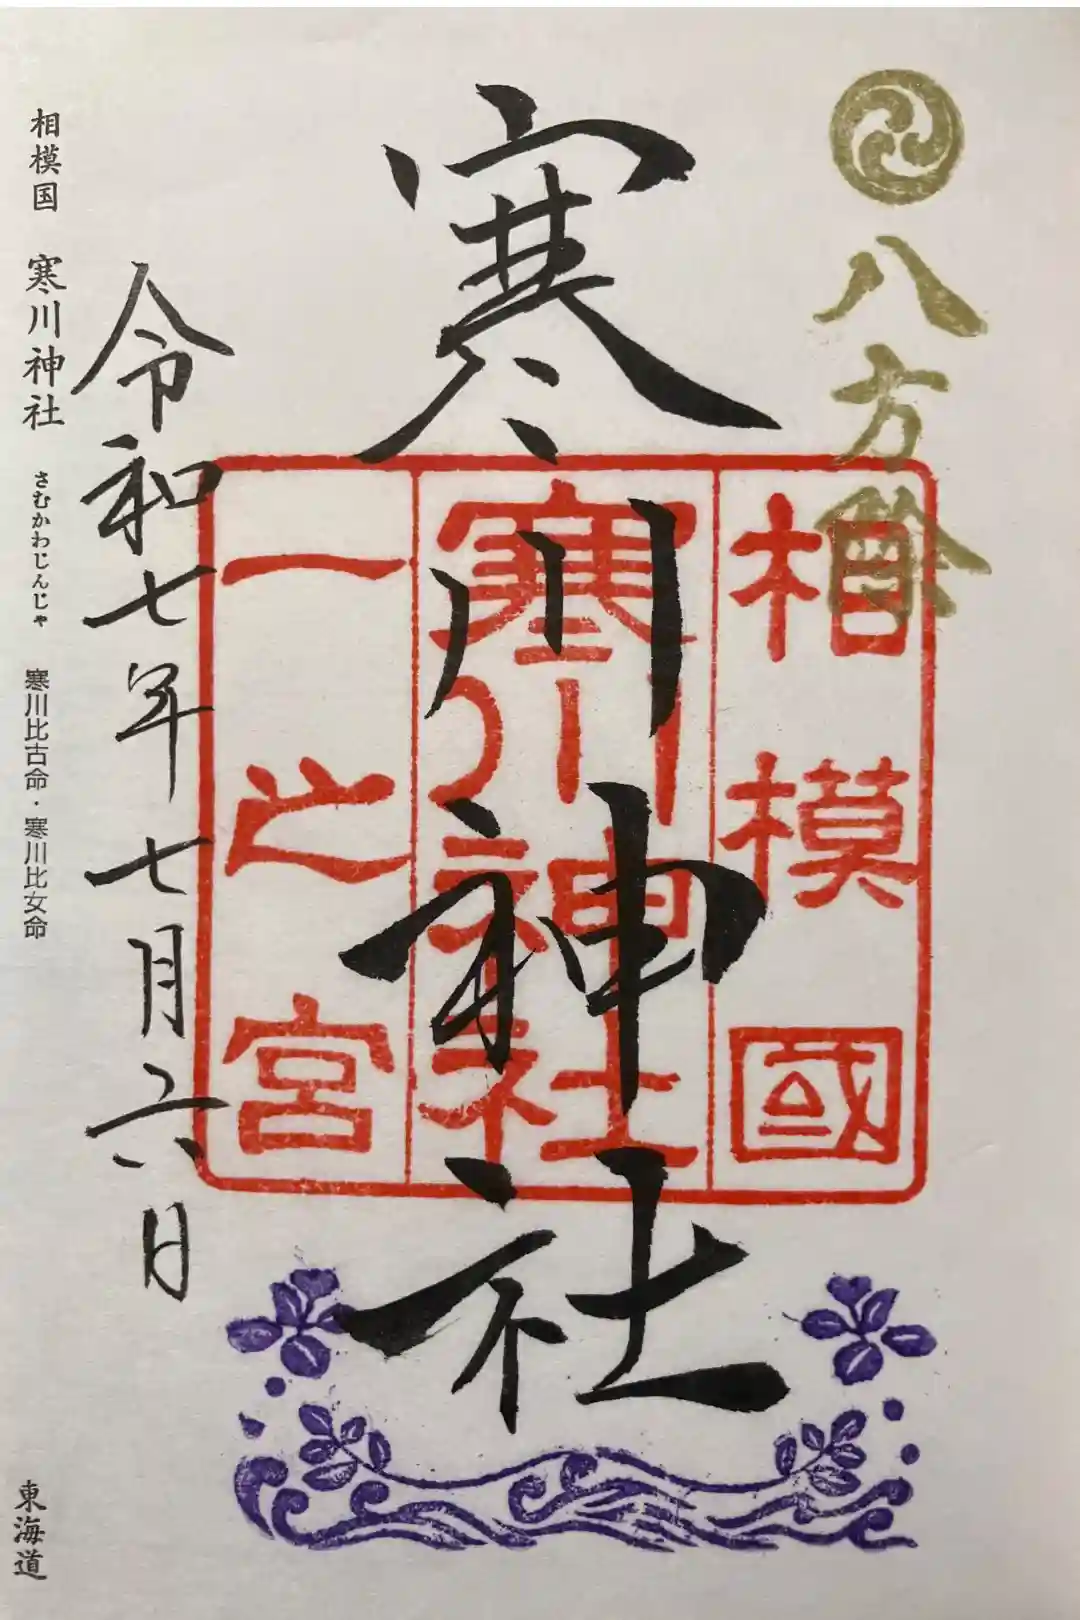 八方除
寒川神社
相模國
寒川神社
一之宮
令和七年七月六日
相模国 寒川神社 さむかわじんじゃ 寒川比古命・寒川比女命
東海道